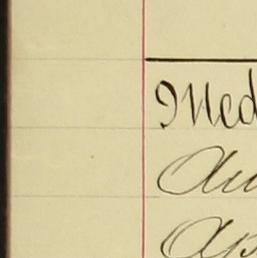 Med
Au
Ap